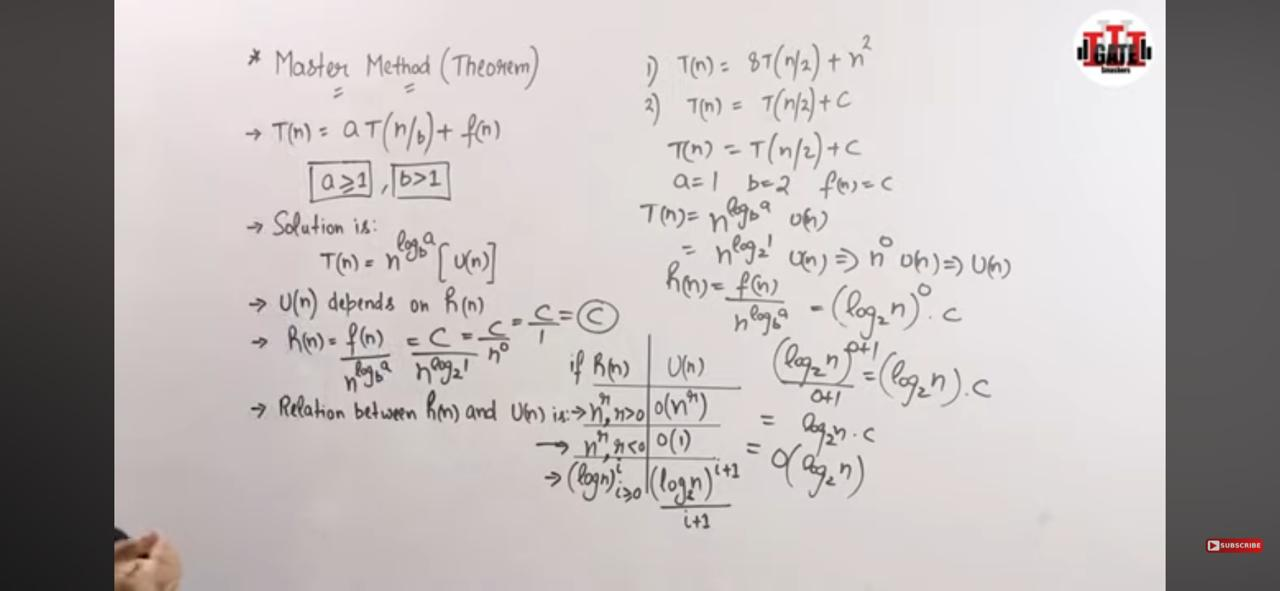 * Master Method (Theorem)
→ T(n) = aT(n/b) + f(n)
a≥1 , b>1
→ Solution is:
T(n) = n^log_b a [U(n)]
→ U(n) depends on h(n)
→ h(n) = f(n)/n^log_b a = C/n^log_2 1 = C/n^0 = C/1 = C
→ Relation between h(n) and U(n) is:→
if h(n) | U(n)
n^r, r>0 | O(n^r)
→ n^r, r<0 | O(1)
→ (log n)^i i≥0 | (log_2 n)^i+1 / i+1
1) T(n) = 8T(n/2) + n^2
2) T(n) = T(n/2) + C
T(n) = T(n/2) + C
a=1 b=2 f(n)=C
T(n) = n^log_b a U(n)
= n^log_2 1 U(n) ⇒ n^0 U(n) ⇒ U(n)
h(n) = f(n)/n^log_b a = (log_2 n)^0 . C
(log_2 n)^0+1 / 0+1 = (log_2 n). C
= log_2 n . C
= O(log_2 n)
GATE
Smashers
SUBSCRIBE